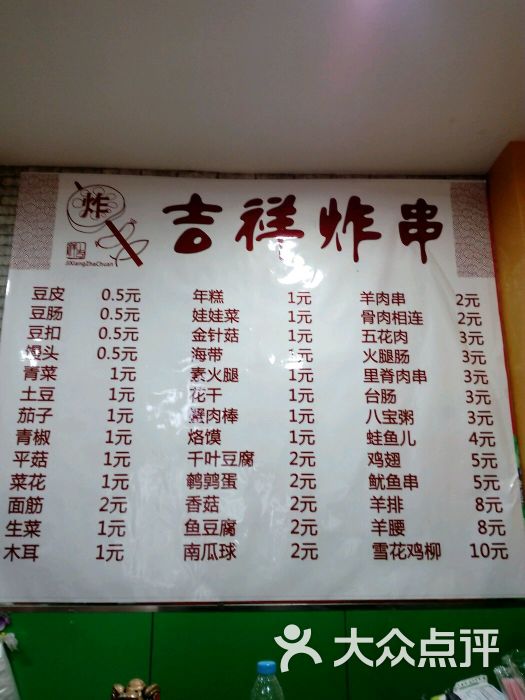 炸
吉祥炸串
JiXiangZhaChuan
豆皮 0.5元 年糕 1元 羊肉串 2元
豆肠 0.5元 娃娃菜 1元 骨肉相连 2元
豆扣 0.5元 金针菇 1元 五花肉 3元
馒头 0.5元 海带 1元 火腿肠 3元
青菜 1元 素火腿 1元 里脊肉串 3元
土豆 1元 花干 1元 台肠 3元
茄子 1元 蟹肉棒 1元 八宝粥 3元
青椒 1元 烙馍 1元 蛙鱼儿 4元
平菇 1元 千叶豆腐 2元 鸡翅 5元
菜花 1元 鹌鹑蛋 2元 鱿鱼串 5元
面筋 2元 香菇 2元 羊排 8元
生菜 1元 鱼豆腐 2元 羊腰 8元
木耳 1元 南瓜球 2元 雪花鸡柳 10元
大众点评